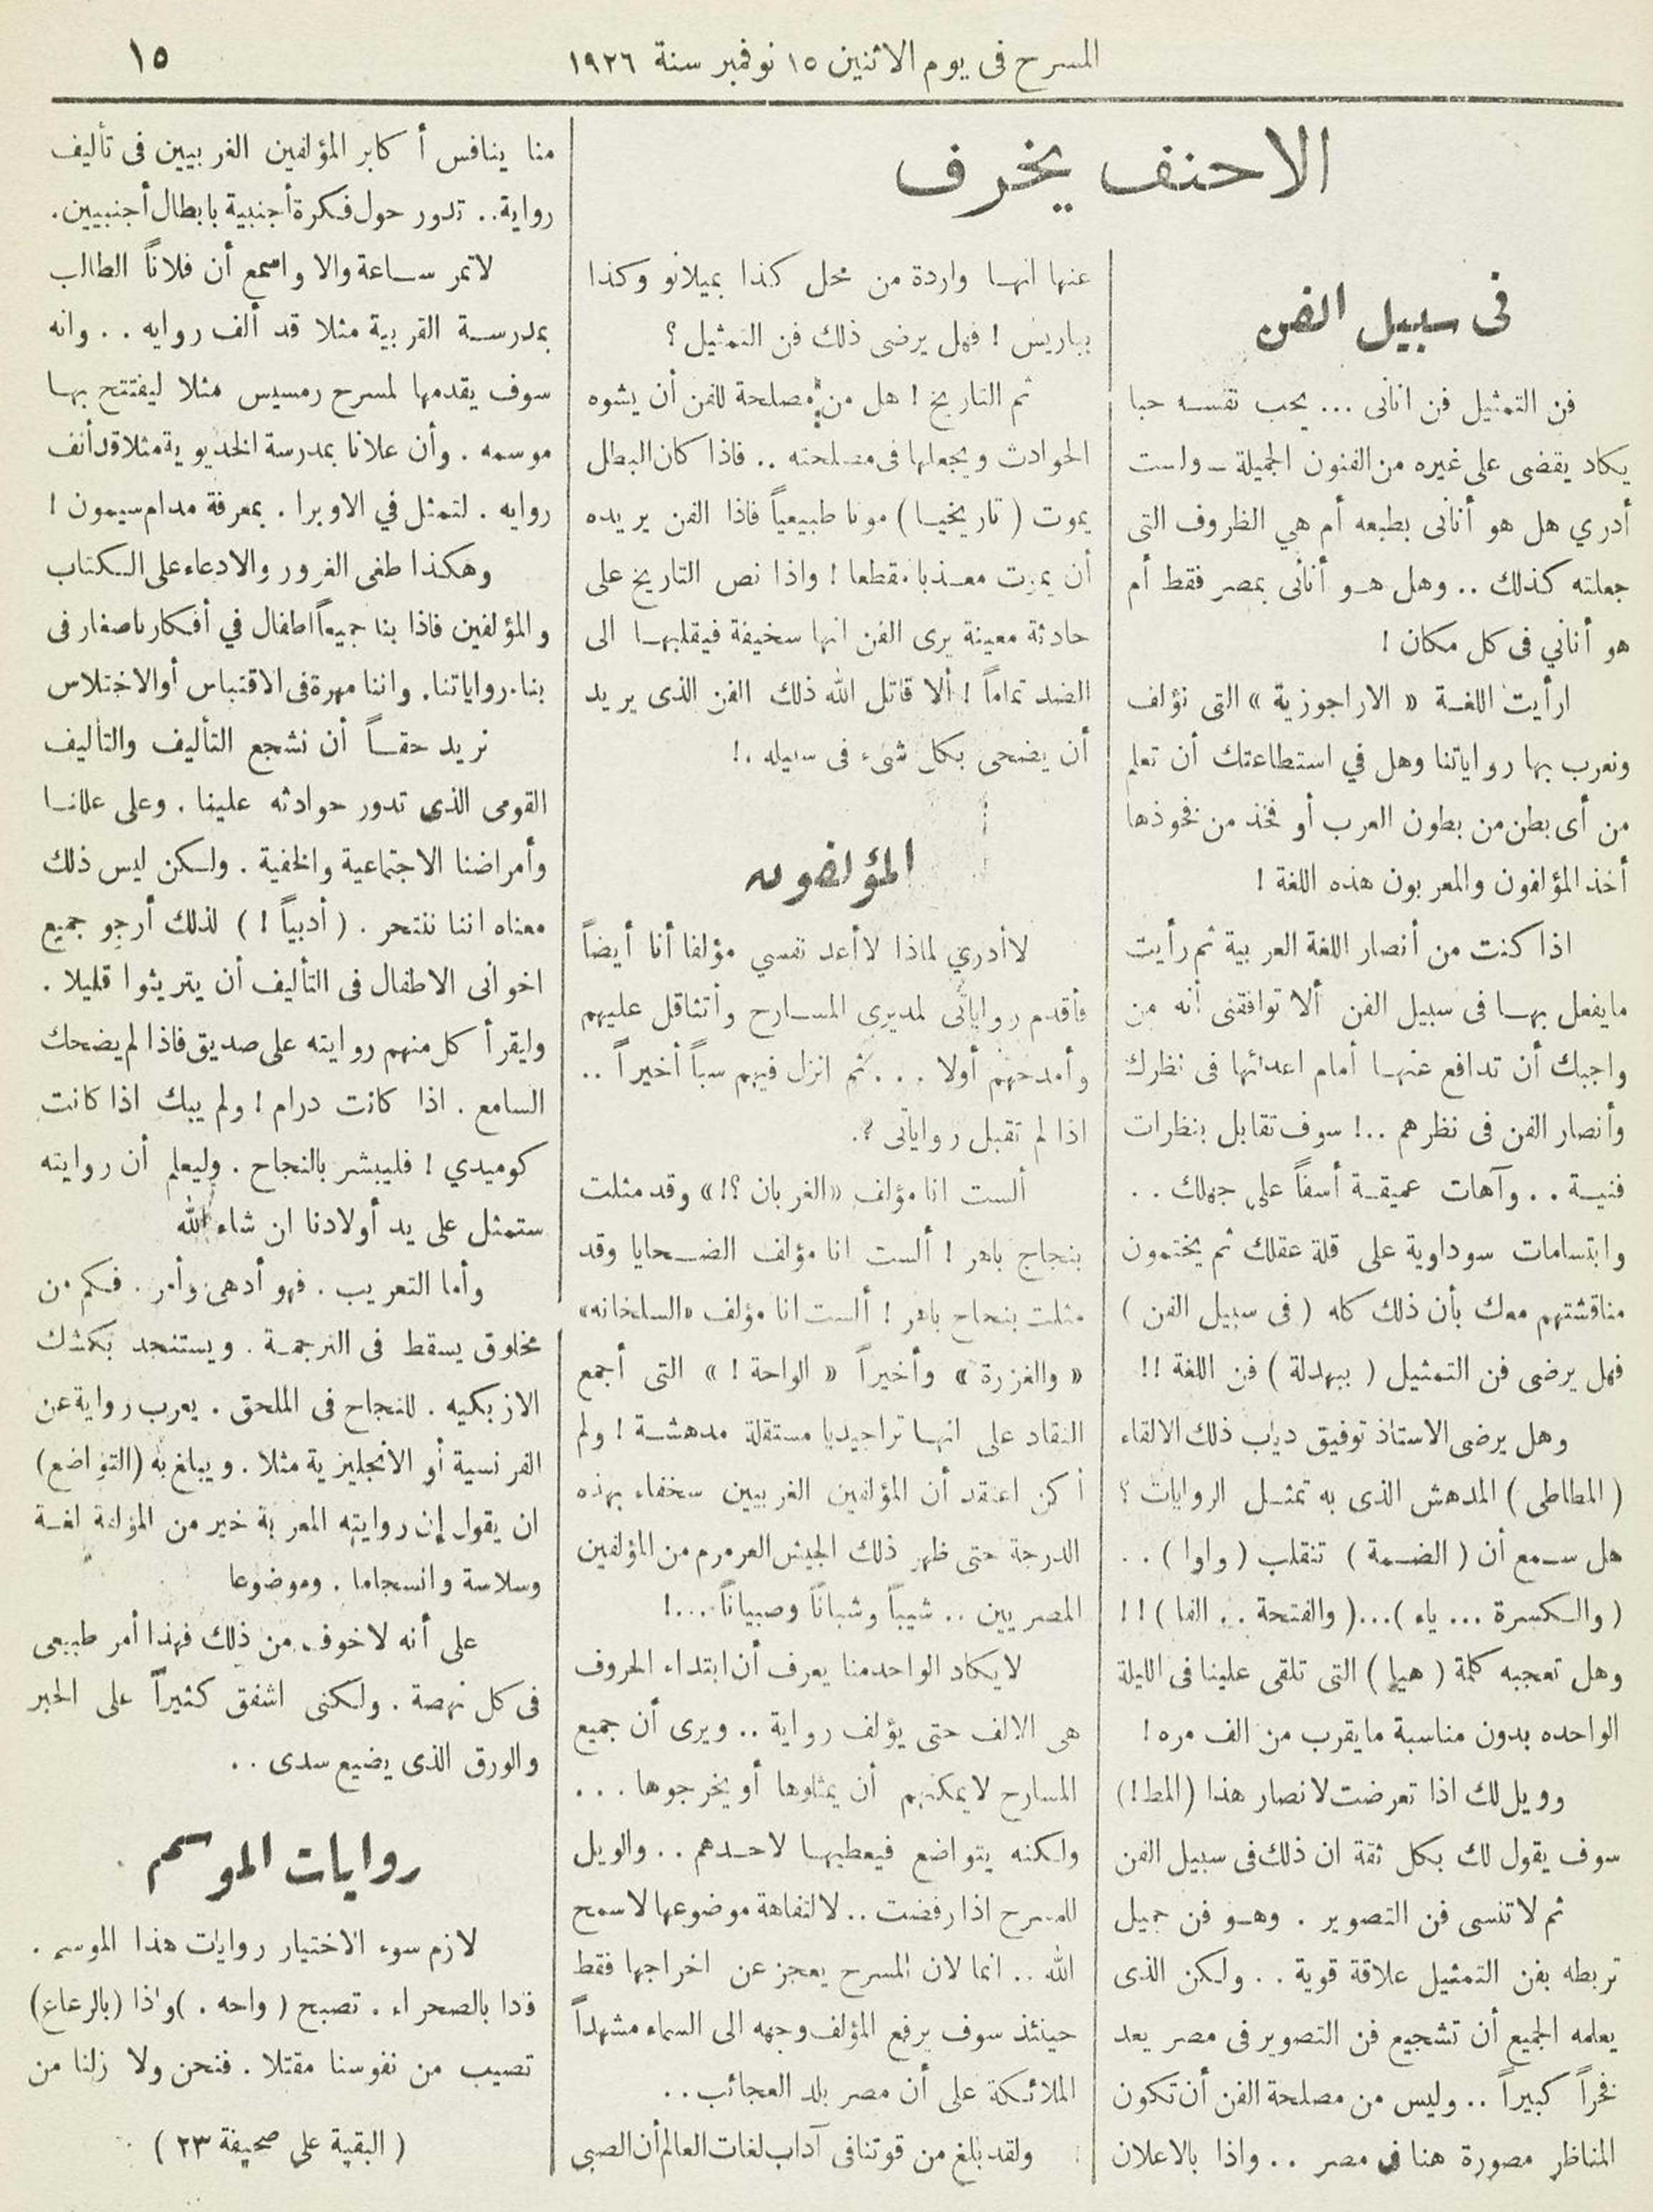 المسرح فى يوم الاثنين ١٥ نوفمبر سنة ١٩٢٦
١٥
الاحنف يخرف
فى سبيل الفن
فن التمثيل فن انانى ... يحب نفسه حبا
يكاد يقضى على غيره من الفنون الجميلة ــ ولست
أدري هل هو أنانى بطبعه أم هي الظروف التى
جعلته كذلك .. وهل هو أنانى بمصر فقط أم
هو أناني فى كل مكان !
ارأيت اللغة « الاراجوزية » التى نؤلف
ونعرب بها رواياتنا وهل في استطاعتك أن تعلم
من أى بطن من بطون العرب أو فخذ من فخوذها
أخذ المؤلفون والمعربون هذه اللغة !
اذا كنت من أنصار اللغة العربية ثم رأيت
مايفعل بها فى سبيل الفن ألا توافقنى أنه من
واجبك أن تدافع عنها أمام اعدائها فى نظرك
وأنصار الفن فى نظرهم ..! سوف تقابل بنظرات
فنية .. وآهات عميقة أسفاً على جهلك ..
وابتسامات سوداوية على قلة عقلك ثم يختمون
مناقشتهم معك بأن ذلك كله ( فى سبيل الفن )
فهل يرضى فن التمثيل ( ببهدلة ) فن اللغة !!
وهل يرضى الاستاذ توفيق دياب ذلك الالقاء
( المطاطى ) المدهش الذى به تمثل الروايات ؟
هل سمع أن ( الضمة ) تنقلب ( واوا ) ..
( والكسرة ... ياء )...( والفتحة .. الفا ) !!
وهل تعجبه كلمة ( هيا ) التى تلقى علينا فى الليلة
الواحده بدون مناسبة مايقرب من الف مره !
وويل لك اذا تعرضت لانصار هذا (المط!)
سوف يقول لك بكل ثقة ان ذلك فى سبيل الفن
ثم لا تنسى فن التصوير . وهو فن جميل
تربطه بفن التمثيل علاقة قوية .. ولكن الذى
يعلمه الجميع أن تشجيع فن التصوير فى مصر يعد
فخراً كبيراً .. وليس من مصلحة الفن أن تكون
المناظر مصورة هنا فى مصر .. واذا بالاعلان
عنها انها واردة من محل كذا بميلانو وكذا
بباريس ! فهل يرضى ذلك فن التمثيل ؟
ثم التاريخ ! هل من مصلحة للفن أن يشوه
الحوادث ويجعلها فى مصلحته .. فاذا كان البطل
يموت ( تاريخيا ) موتا طبيعياً فاذا الفن يريده
أن يموت معذبا مقطعا ! واذا نص التاريخ على
حادثة معينة يرى الفن انها سخيفة فيقلبها الى
الضد تماماً ! ألا قاتل الله ذلك الفن الذى يريد
أن يضحى بكل شىء فى سبيله .!
المؤلفون
لاأدري لماذا لاأعد نفسي مؤلفا أنا أيضاً
فأقدم رواياتى لمديرى المسارح وأتثاقل عليهم
وأمدحهم أولا ... ثم انزل فيهم سباً أخيراً ..
اذا لم تقبل رواياتى ؟.
ألست انا مؤلف «الغربان ؟!» وقد مثلت
بنجاح باهر ! ألست انا مؤلف الضحايا وقد
مثلت بنجاح باهر ! ألست انا مؤلف «السلخانه»
« والغزرة » وأخيراً « الواحة ! » التى أجمع
النقاد على انها تراجيديا مستقلة مدهشة ! ولم
أكن اعتقد أن المؤلفين الغربيين سخفاء بهذه
الدرجة حتى ظهر ذلك الجيش العرمرم من المؤلفين
المصريين .. شيباً وشباناً وصبياناً ...!
لايكاد الواحد منا يعرف أن ابتداء الحروف
هى الالف حتى يؤلف رواية .. ويرى أن جميع
المسارح لايمكنهم أن يمثلوها أو يخرجوها ...
ولكنه يتواضع فيعطيها لاحدهم .. والويل
للمسرح اذا رفضت .. لا لتفاهة موضوعها لاسمح
الله .. انما لان المسرح يعجز عن اخراجها فقط
حينئذ سوف يرفع المؤلف وجهه الى السماء مشهداً
الملائكة على أن مصر بلد العجائب ..
ولقد بلغ من قوتنا فى آداب لغات العالم أن الصبى
منا ينافس أكابر المؤلفين الغربيين فى تأليف
رواية .. تدور حول فكرة أجنبية بابطال أجنبيين.
لاتمر ساعة والا واسمع أن فلاناً الطالب
بمدرسة القربية مثلا قد ألف روايه .. وانه
سوف يقدمها لمسرح رمسيس مثلا ليفتتح بها
موسمه . وأن علانا بمدرسة الخديوية مثلا قد أنف
روايه . لتمثل في الاوبرا . بمعرفة مدام سيمون !
وهكذا طغى الغرور والادعاء على الكتاب
والمؤلفين فاذا بنا جميعاً اطفال في أفكارنا صغار فى
بناء رواياتنا. واننا مهرة فى الاقتباس أو الاختلاس
نريد حقاً أن نشجع التأليف والتأليف
القومى الذى تدور حوادثه علينا . وعلى عللنا
وأمراضنا الاجتماعية والخفية . ولكن ليس ذلك
معناه اننا ننتحر . ( أدبياً ! ) لذلك أرجو جميع
اخوانى الاطفال فى التأليف أن يتريثوا قليلا .
وليقرأ كل منهم روايته على صديق فاذا لم يضحك
السامع . اذا كانت درام ! ولم يبك اذا كانت
كوميدي ! فليبشر بالنجاح . وليعلم أن روايته
ستمثل على يد أولادنا ان شاء الله
وأما التعريب . فهو أدهى وأمر . فكم من
مخلوق يسقط فى الترجمة . ويستنجد بكشك
الازبكيه . للنجاح فى الملحق . يعرب رواية عن
الفرنسية أو الانجليزية مثلا . ويبلغ به (التواضع)
ان يقول إن روايته المعربة خير من المؤلفة لغة
وسلاسة وانسجاما . وموضوعا
على أنه لاخوف من ذلك فهذا أمر طبيعى
فى كل نهضة . ولكنى اشفق كثيراً على الحبر
والورق الذى يضيع سدى ..
روايات الموسم
لازم سوء الاختيار روايات هذا الموسم .
فاذا بالصحراء . تصبح ( واحه . )واذا (بالرعاع)
تصيب من نفوسنا مقتلا . فنحن ولا زلنا من
( البقية على صحيفة ٢٣ )